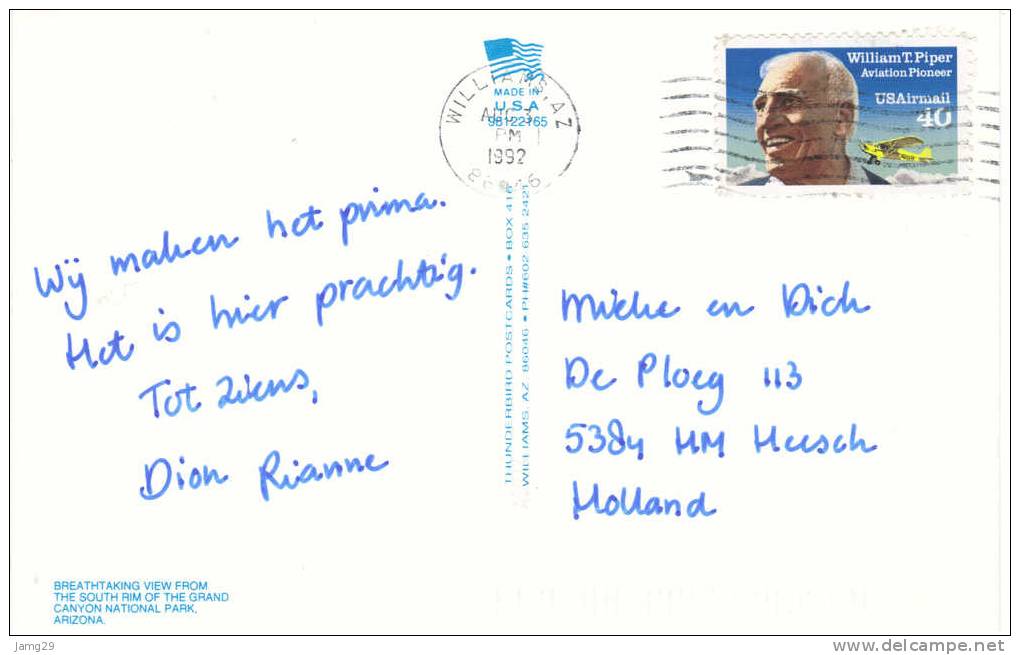 MADE IN
U.S.A
98122165
WILLIAMS, AZ
AUG 3
PM
1992
William T. Piper
Aviation Pioneer
USAirmail
40
Wij maken het prima.
Het is hier prachtig.
Tot ziens,
Dion Rianne
THUNDERBIRD POSTCARDS • BOX 416
WILLIAMS, AZ 86046 • PH#602 635 2421
Mieke en Dick
De Ploeg 113
5384 HM Heesch
Holland
BREATHTAKING VIEW FROM
THE SOUTH RIM OF THE GRAND
CANYON NATIONAL PARK,
ARIZONA.
Jamg29
www.delcampe.net